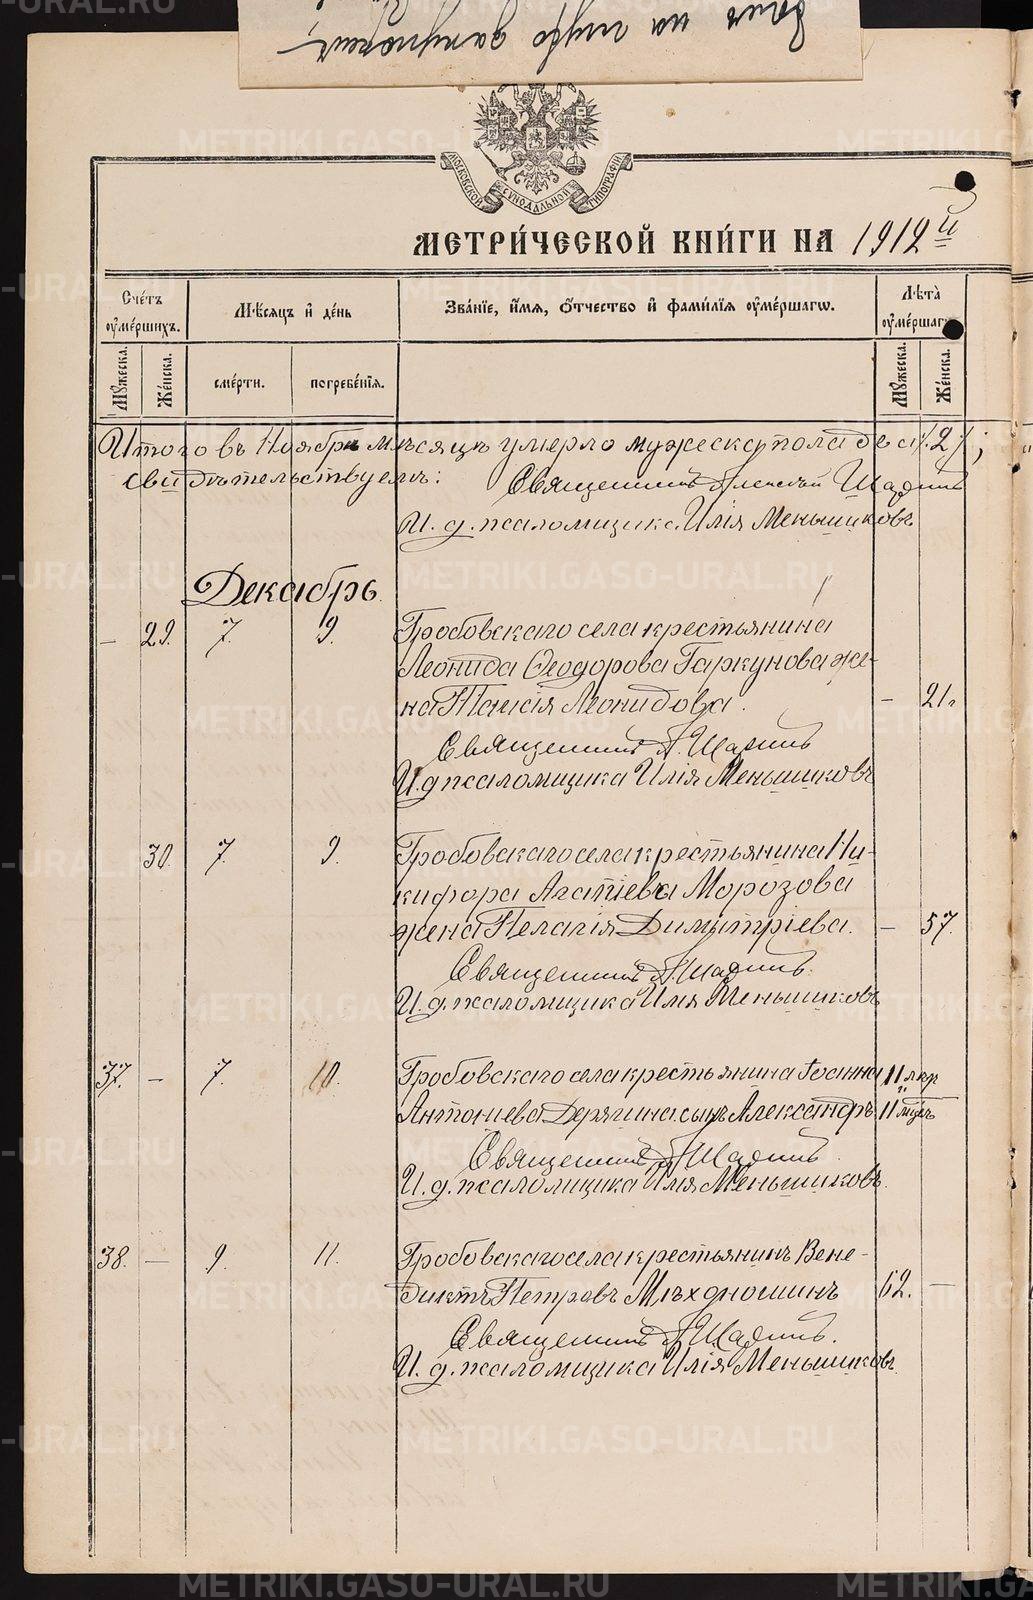 МОСКОВСКОЙ СУНОДАЛЬНОЙ ТИПОГРАФIИ
МЕТРИ́ЧЕСКОЙ КНИ́ГИ НА 1912й
Сче́тъ оуме́ршихъ.
Мѣсяцъ и де́нь
Зва́нїе, и́мѧ, о́тчество и фами́лїѧ оуме́ршагѡ.
Лѣта̀ оуме́ршагѡ
Мꙋ́жеска.
Же́нска.
сме́рти.
погребе́нїѧ.
Мꙋ́жеска.
Же́нска.
Итого въ Ноябрѣ мѣсяцѣ умерло мужеска пола два /2/;
свидѣтельствуемъ: Священникъ Алексѣй Шадринъ
И. д. псаломщика Илiя Меньшиковъ
Декабрь.
— 29. 7. 9. Гробовскаго села крестьянина
Леонида Ѳеодорова Гаркунова же-
на Таисiя Леонидова. — 21.
Священникъ А. Шадринъ
И. д. псаломщика Илiя Меньшиковъ
30. 7. 9. Гробовскаго села крестьянина Ни-
кифора Агапiева Морозова
жена Пелагiя Димитрiева. — 57.
Священникъ А. Шадринъ.
И. д. псаломщика Илiя Меньшиковъ
37. — 7. 10. Гробовскаго села крестьянина Iоанна 11 лѣтъ
Антонiева Дерягина сынъ Александръ 11 мѣс.
Священникъ А. Шадринъ.
И. д. псаломщика Илiя Меньшиковъ.
38. — 9. 11. Гробовскаго села крестьянинъ Вене-
диктъ Петровъ Мѣхоношинъ 62. —
Священникъ А. Шадринъ.
И. д. псаломщика Илiя Меньшиковъ.
METRIKI.GASO-URAL.RU